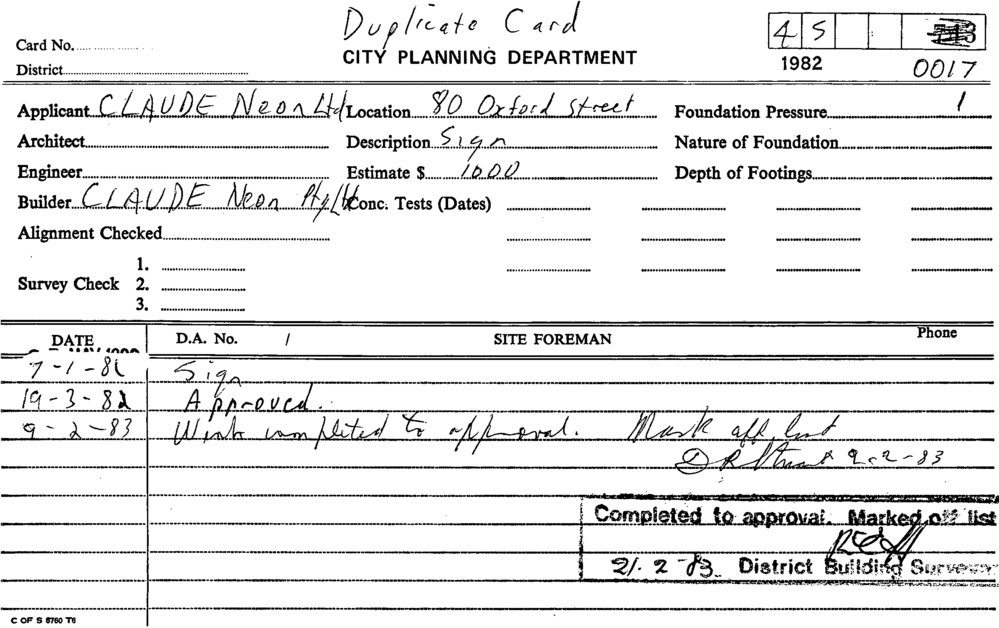 Duplicate Card
Card No.
CITY PLANNING DEPARTMENT
4 5
District
1982
0017
Applicant CLAUDE Neon Ltd Location 80 Oxford Street Foundation Pressure /
Architect Description Sign Nature of Foundation
Engineer Estimate $ 1000 Depth of Footings
Builder CLAUDE Neon Pty/Ltd Conc. Tests (Dates)
Alignment Checked
1.
Survey Check 2.
3.
DATE D.A. No. / SITE FOREMAN Phone
7-1-82 Sign
19-3-82 Approved.
9-2-83 Work completed to approval. Mark off list
9-2-83
Completed to approval. Marked off list
21.2-83 District Building Surveyor
C OF S 6760 T6